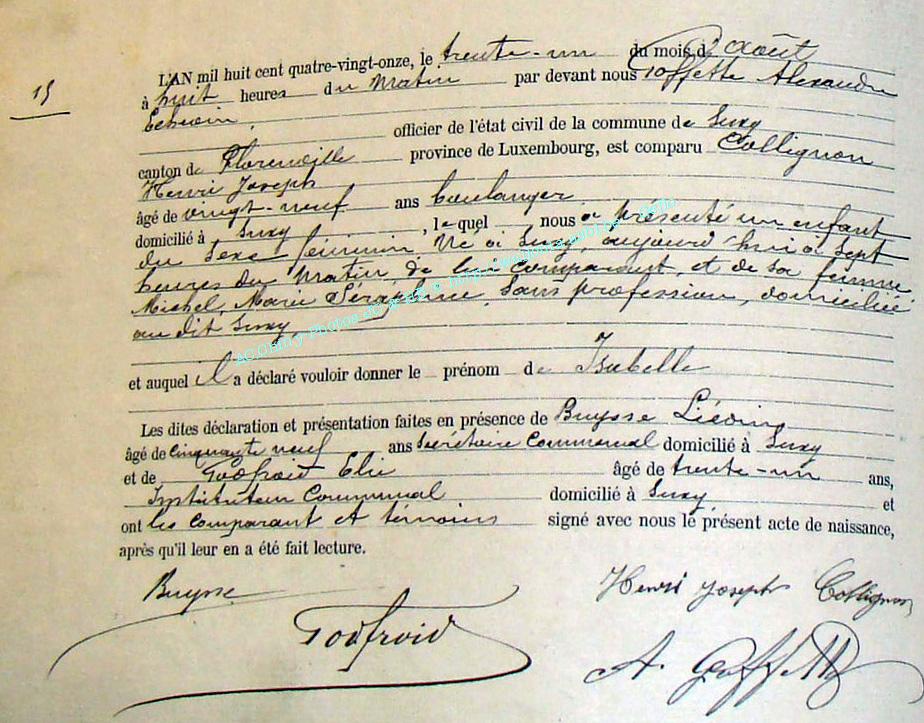 15
L'AN mil huit cent quatre-vingt-onze, le trente-un du mois d'Août
à huit heures du Matin par devant nous Goffette Alexandre
officier de l'état civil de la commune de Suxy
canton de Florenville province de Luxembourg, est comparu Collignon
Henri Joseph
âgé de vingt-neuf ans boulanger
domicilié à Suxy, lequel nous a présenté un enfant
du sexe féminin Né à Suxy, aujourd'hui à sept
heures du Matin, de lui comparant, et de sa femme
Michel, Marie Séraphine, Sans profession, domiciliée
au dit Suxy
et auquel il a déclaré vouloir donner le prénom de Isabelle
Les dites déclaration et présentation faites en présence de Buysse Liévin
âgé de cinquante neuf ans Secrétaire Communal domicilié à Suxy
et de Godfroid Elie âgé de trente-un ans,
Instituteur Communal domicilié à Suxy et
ont les comparant et témoins signé avec nous le présent acte de naissance,
après qu'il leur en a été fait lecture.
Buysse
Henri Joseph Collignon
Godfroid
A. Goffette